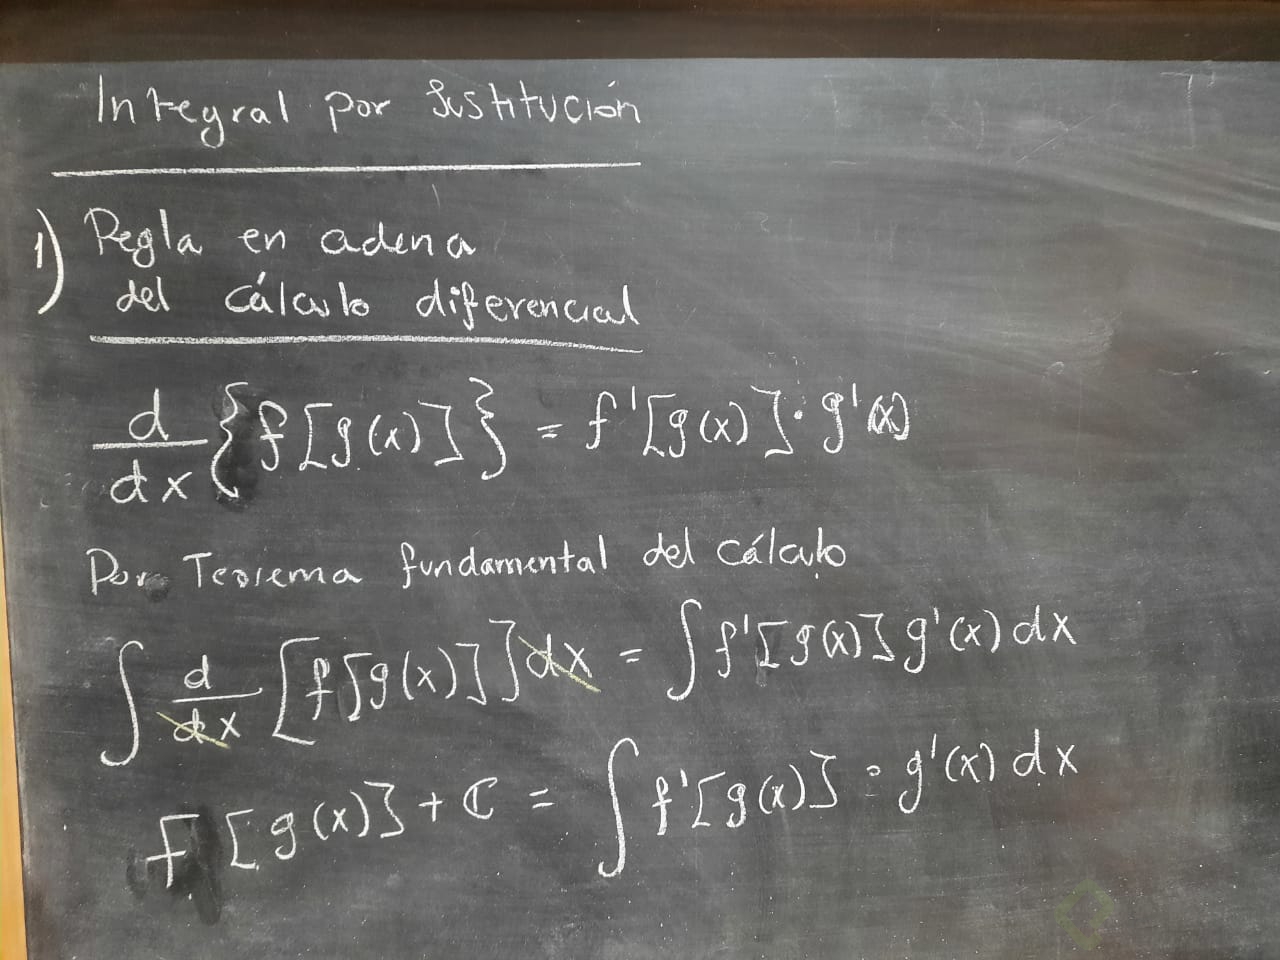 Integral por Sustitución
1) Regla en cadena
del cálculo diferencial
d/dx {f[g(x)]} = f'[g(x)]·g'(x)
Por Teorema fundamental del cálculo
∫ d/dx [f[g(x)]]dx = ∫f'[g(x)]g'(x)dx
f[g(x)]+C = ∫f'[g(x)]·g'(x)dx